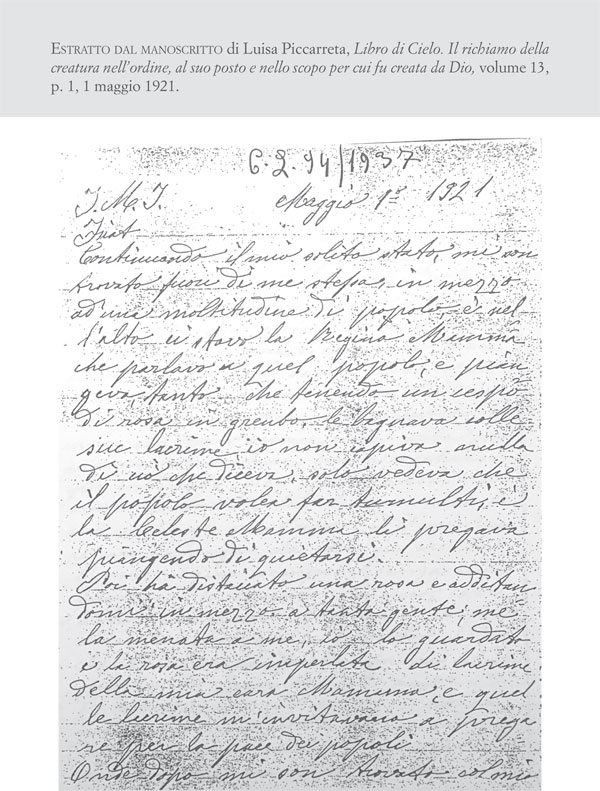 ESTRATTO DAL MANOSCRITTO di Luisa Piccarreta, Libro di Cielo. Il richiamo della
creatura nell'ordine, al suo posto e nello scopo per cui fu creata da Dio, volume 13,
p. 1, 1 maggio 1921.
6.2.94/1937
J. M. J. Maggio 1º 1921
Fiat
Continuando il mio solito stato, mi son
trovato fuori di me stessa, in mezzo
ad una moltitudine di popolo, e nel
l'alto ci stavo la Regina Mammà
che parlavo a quel popolo, e pian
geva, tanto che tenendo un cespo
di rosa in grembo, le bagnava colle
sue lacrime, io non capiva nulla
di ciò che diceva, solo vedeva che
il popolo volea far tumulti, e
la Celeste Mamma li pregava
piangendo di quietarsi.
Poi ha distaccato una rosa e additan
domi in mezzo a tanta gente, me
la menata a me, io lo guardato
e la rosa era imperlata di lacrime
della mia cara Mamma, e quel
le lacrime m'invitavano a prega
re per la pace dei popoli
Onde dopo mi son trovato col mio